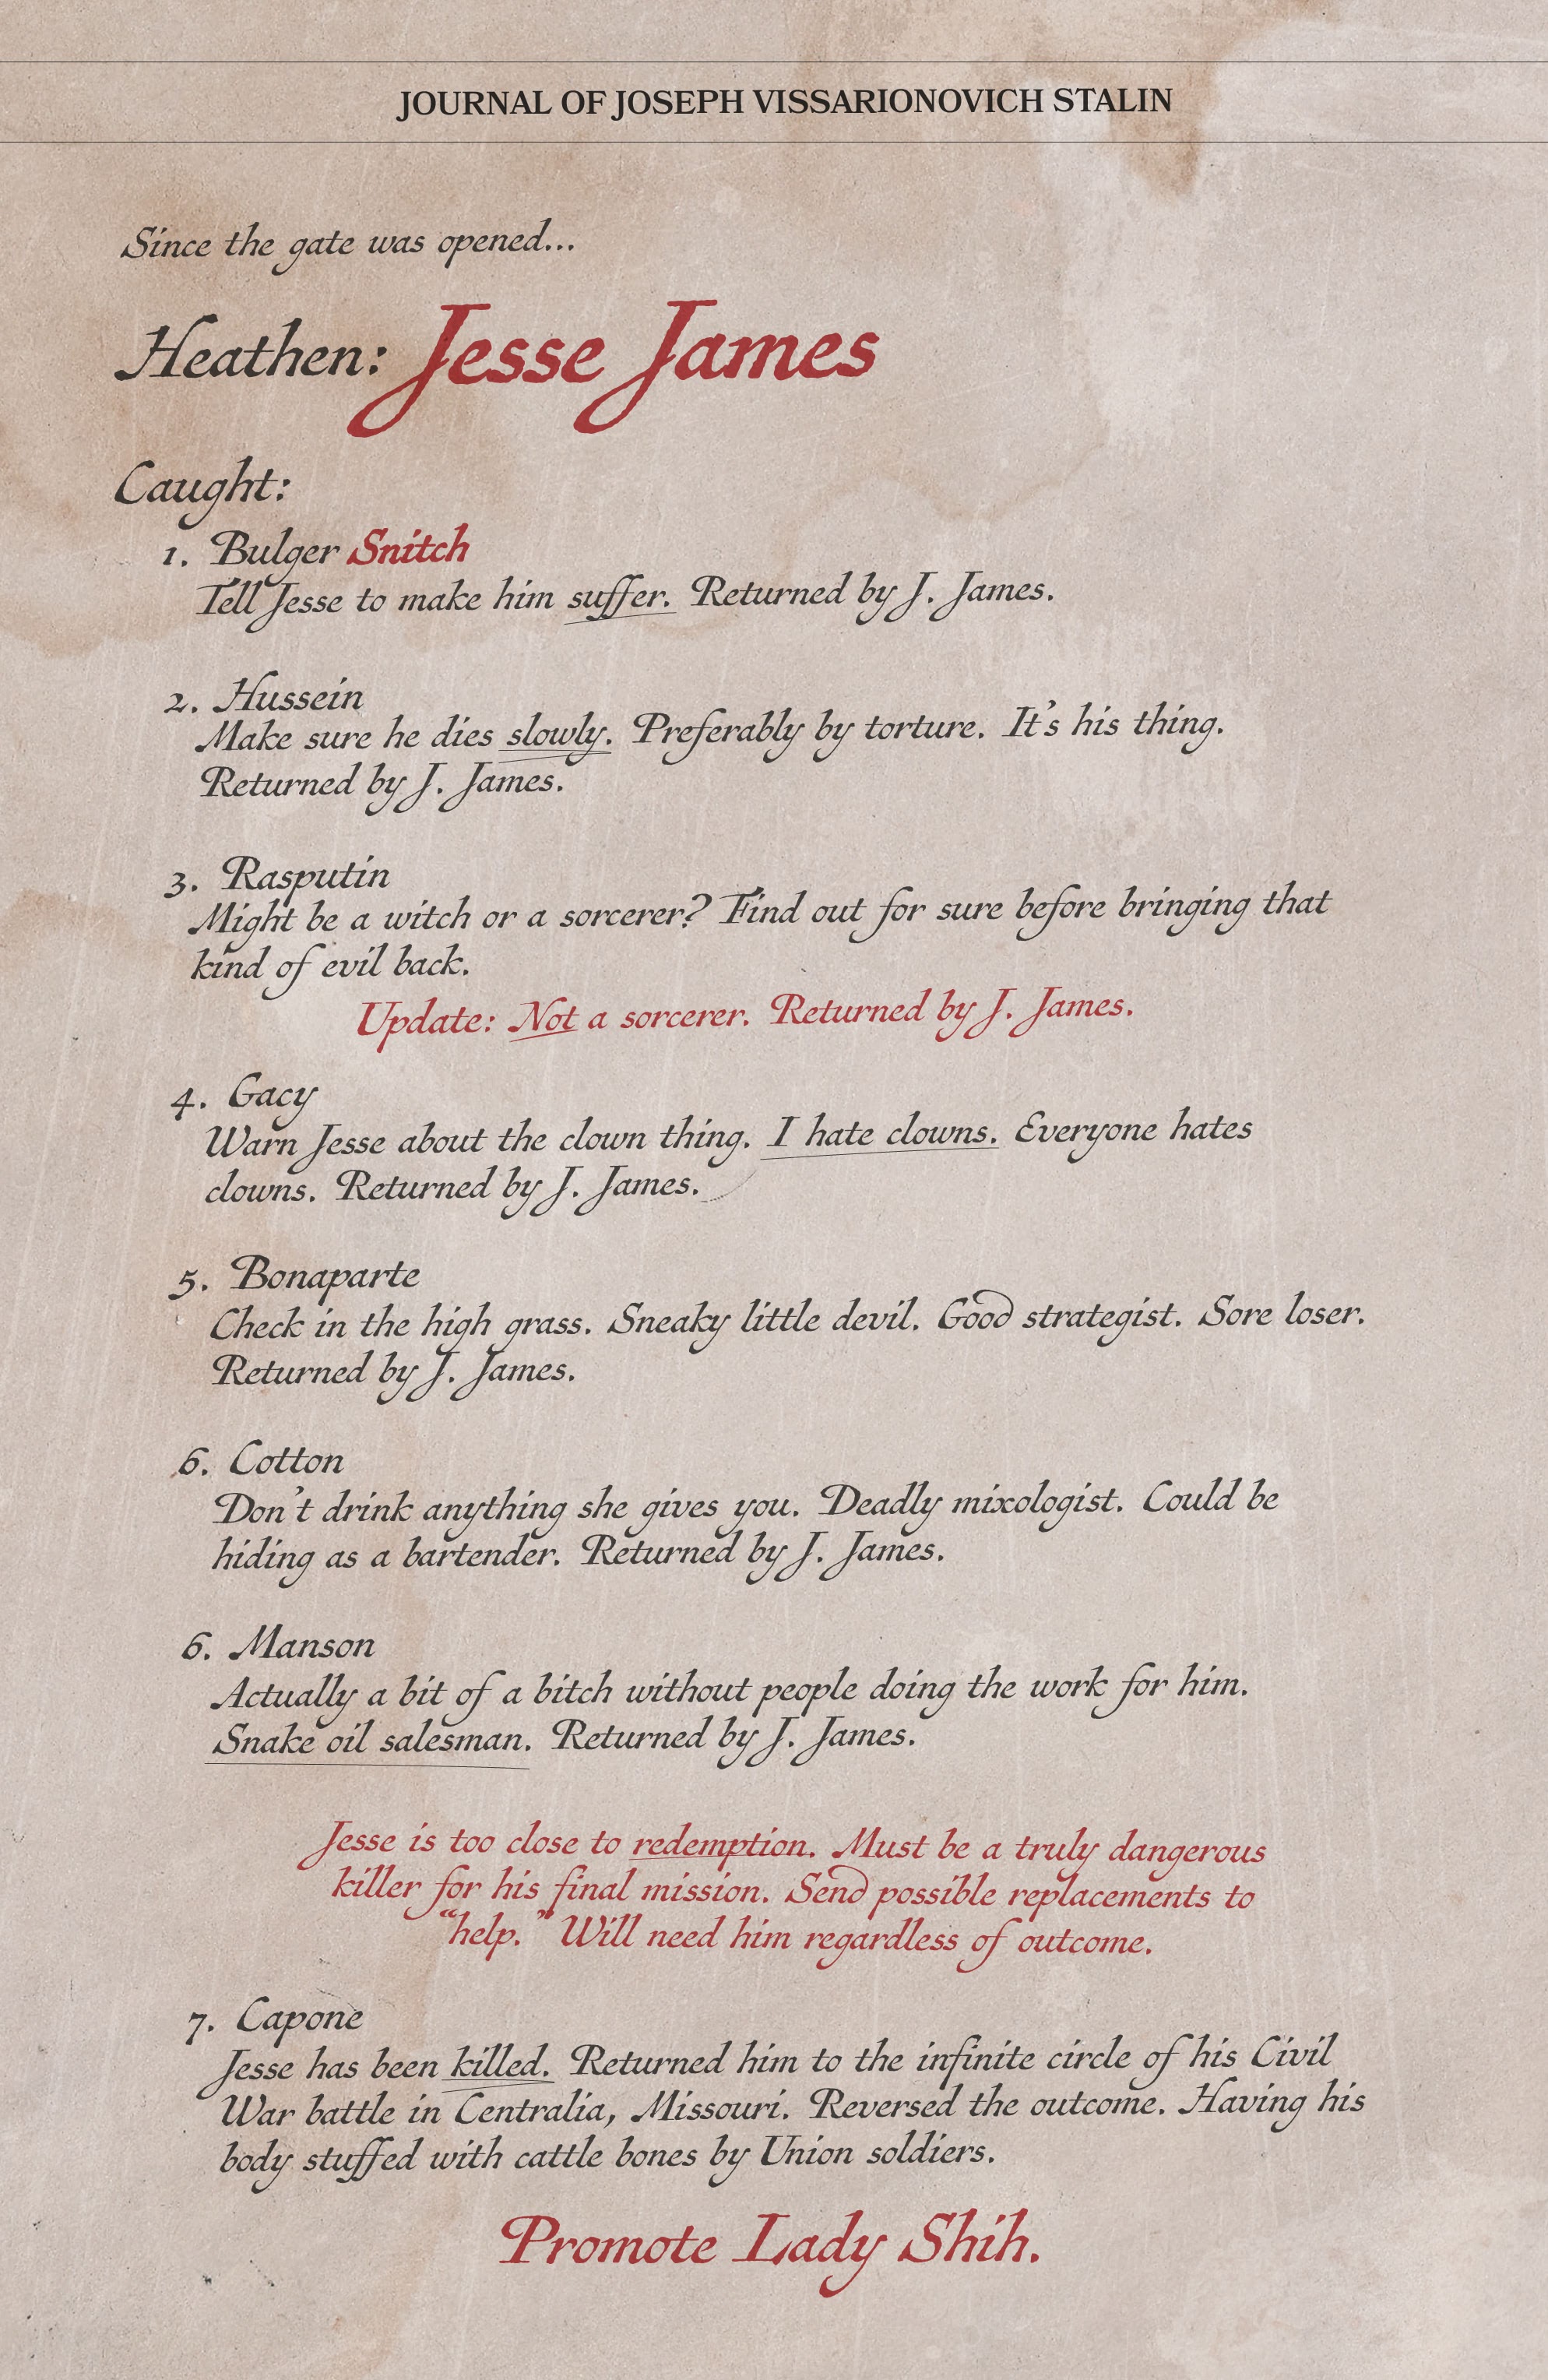 JOURNAL OF JOSEPH VISSARIONOVICH STALIN
Since the gate was opened...
Heathen: Jesse James
Caught:
1. Bulger Snitch
Tell Jesse to make him suffer. Returned by J. James.
2. Hussein
Make sure he dies slowly. Preferably by torture. It's his thing.
Returned by J. James.
3. Rasputin
Might be a witch or a sorcerer? Find out for sure before bringing that
kind of evil back.
Update: Not a sorcerer. Returned by J. James.
4. Gacy
Warn Jesse about the clown thing. I hate clowns. Everyone hates
clowns. Returned by J. James.
5. Bonaparte
Check in the high grass. Sneaky little devil. Good strategist. Sore loser.
Returned by J. James.
6. Cotton
Don't drink anything she gives you. Deadly mixologist. Could be
hiding as a bartender. Returned by J. James.
6. Manson
Actually a bit of a bitch without people doing the work for him.
Snake oil salesman. Returned by J. James.
Jesse is too close to redemption. Must be a truly dangerous
killer for his final mission. Send possible replacements to
“help.” Will need him regardless of outcome.
7. Capone
Jesse has been killed. Returned him to the infinite circle of his Civil
War battle in Centralia, Missouri. Reversed the outcome. Having his
body stuffed with cattle bones by Union soldiers.
Promote Lady Shih.